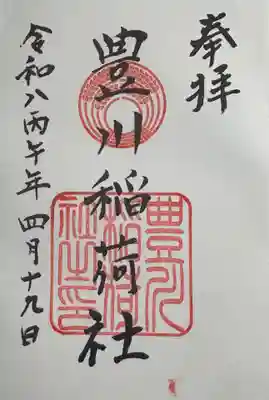 奉拝
豊川稲荷社
豊川稲荷社之印
令和八丙午年 四月十九日